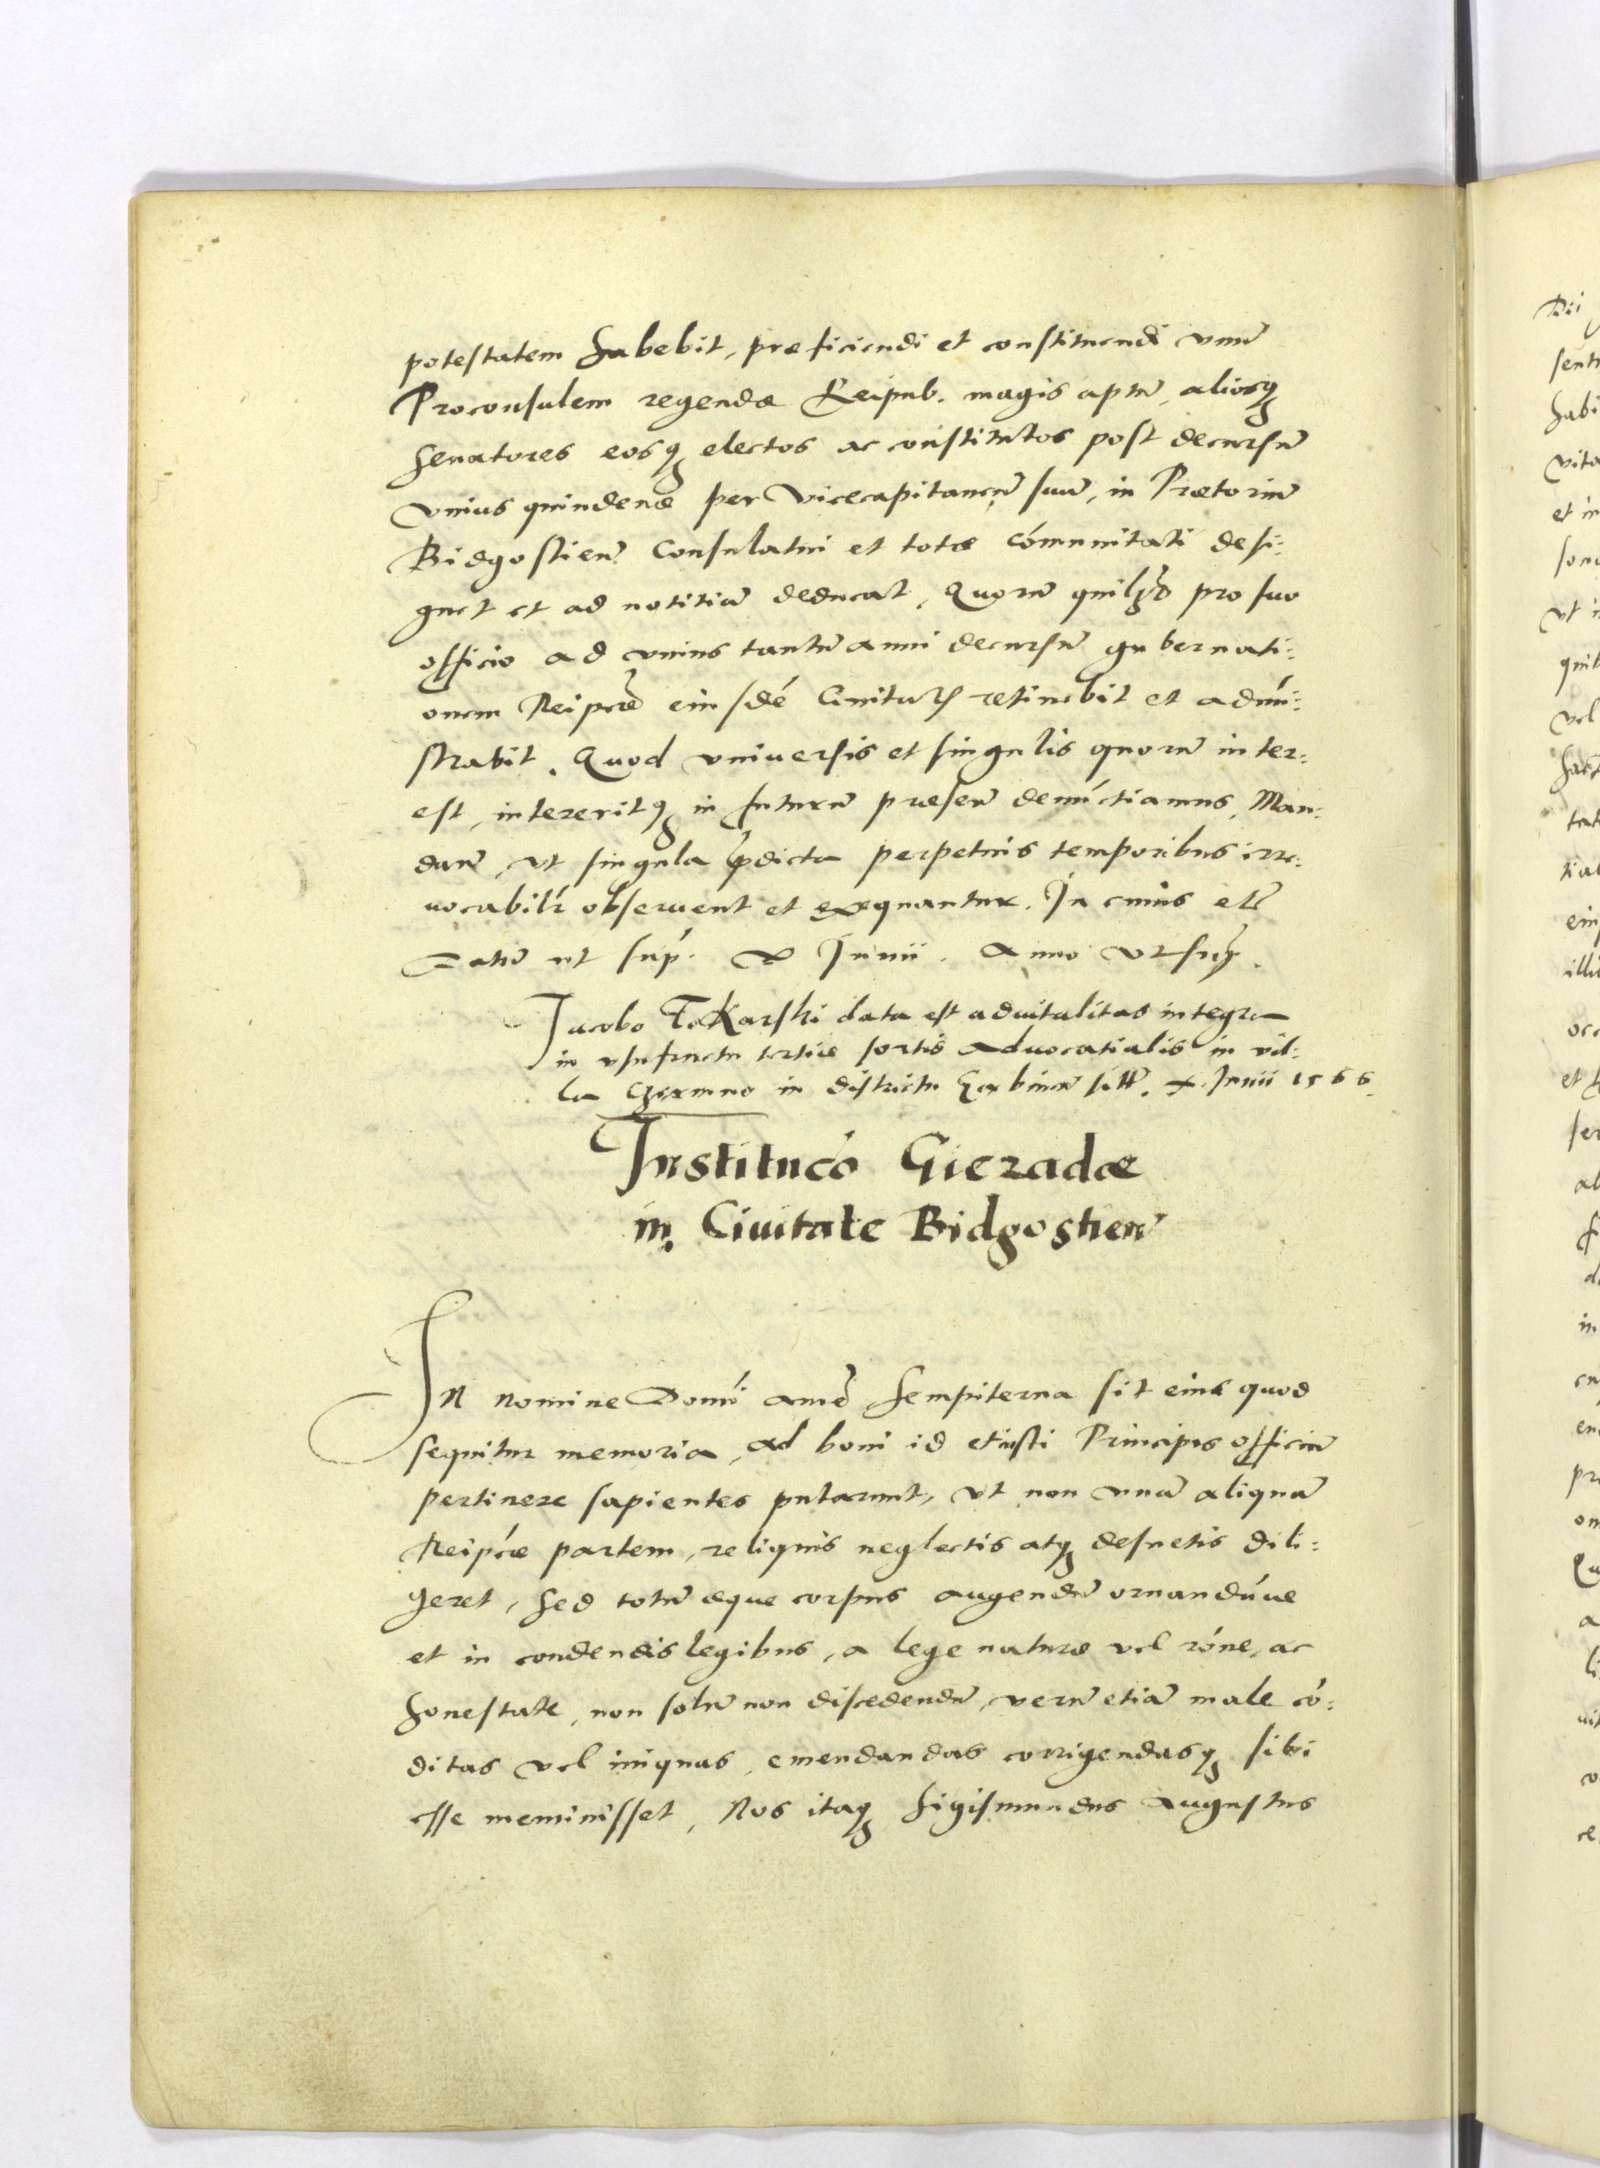 potestatem habebit, præficiendi et constituendi vnū
Proconsulem regendæ Reipub. magis aptū, aliosq̃
senatores eosq̃ electos ac constitutos post decursū
vnius quindenæ per Vicecapitaneū suū, in Prætoriū
Bidgostien̄ Consulatui et totæ cōmunitati desi:
gnet et ad notitiā deducat, Quorū quilꝫ pro suo
officio ad vnius tantū anni decursū gubernati:
onem Reipcæ eiusdē Ciuitatis retinebit et admi:
strabit. Quod vniuersis et singulis quorū inter:
est, intereritq̃ in futurū præsen̄ denūctiamus, Man:
dan̄, vt singula p̄dicta perpetuis temporibus irre:
uocabilr̄ obseruent et exequantur. In cuius etc̄
Datū ut sup̄. X Junii. Anno vt sup̄.
Jacobo Tokarski data est aduitalitas integra
in vsufructu tertiæ sortis aduocatialis in vil:
la in districtu sitt̄. X Junii 1566.
Institucō Gieradæ
in Ciuitate Bidgostien̄
In nomine Domī amē Sempiterna sit eius quod
sequitur memoria, Ad boni id et iusti Principis officiū
pertinere sapientes putarunt, vt non vnā aliquā
Reipcæ partem, reliquis neglectis atq̃ desuetis dili:
geret, sed totū æque corpus augendū ornandūue
et in condendis legibus, a lege naturæ vel rōne, ac
honestate, non solū non discedendū, verū etiā male cō:
ditas vel iniquas, emendandas corrigendasq̃ sibi
esse meminisset, Nos itaq̃ Sigismundus Augustus
Dii
sent
habi
vita
et in
vt i
vel
et
in
a